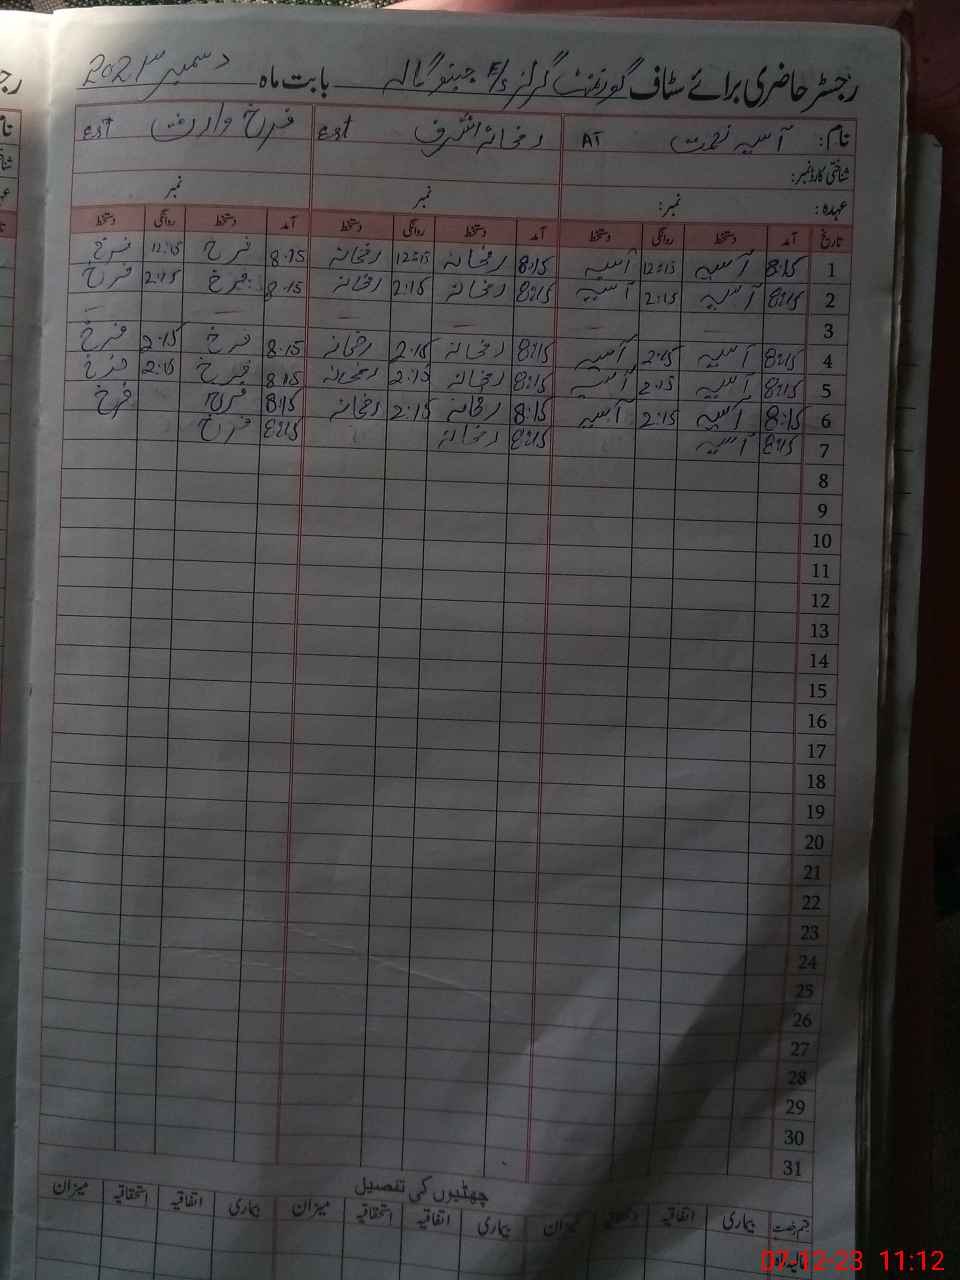 رجسٹر حاضری برائے سٹاف گورنمنٹ گرلز بابت ماہ دسمبر 2023
نام: آسیہ AT رخسانہ اشرف EST فرخ وارث EST
شناختی کارڈ نمبر:
عہدہ: نمبر: نمبر نمبر
تاریخ آمد دستخط روانگی دستخط آمد دستخط روانگی دستخط آمد دستخط روانگی دستخط
1 8:15 آسیہ 12:15 آسیہ 8:15 رخسانہ 12:15 رخسانہ 8:15 فرخ 12:15 فرخ
2 8:15 آسیہ 2:15 آسیہ 8:15 رخسانہ 2:15 رخسانہ 8:15 فرخ 2:15 فرخ
3 — — — — —
4 8:15 آسیہ 2:15 آسیہ 8:15 رخسانہ 2:15 رخسانہ 8:15 فرخ 2:15 فرخ
5 8:15 آسیہ 2:15 آسیہ 8:15 رخسانہ 2:15 رخسانہ 8:15 فرخ 2:15 فرخ
6 8:15 آسیہ 2:15 آسیہ 8:15 رخسانہ 2:15 رخسانہ 8:15 فرخ فرخ
7 8:15 آسیہ 8:15 رخسانہ 8:15 فرخ
8
9
10
11
12
13
14
15
16
17
18
19
20
21
22
23
24
25
26
27
28
29
30
31
چھٹیوں کی تفصیل
بیماری اتفاقیہ استحقاقیہ میزان بیماری اتفاقیہ استحقاقیہ میزان بیماری اتفاقیہ استحقاقیہ میزان
07-12-23 11:12